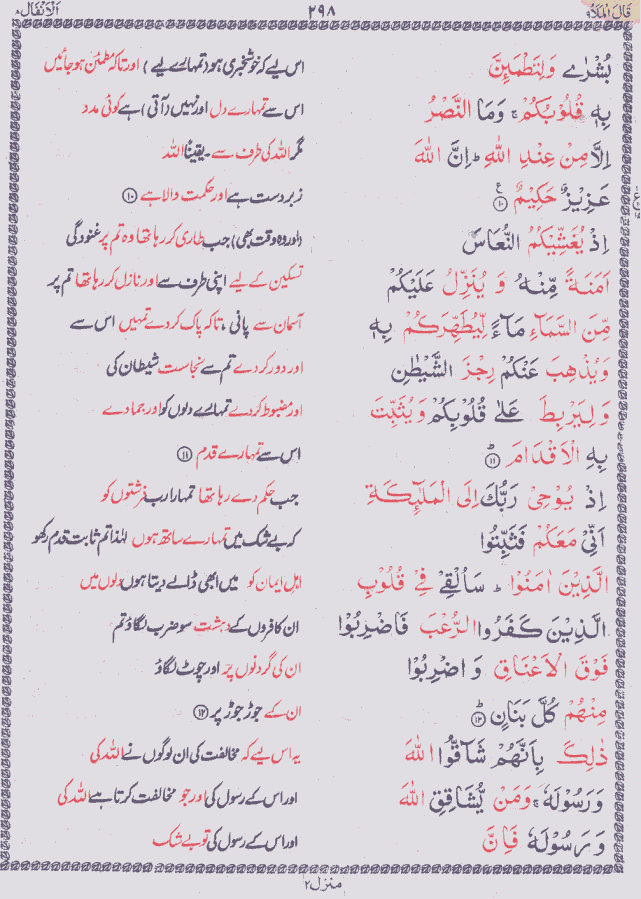 قَالَ الْمَلَاُ ۹ ۲۹۸ اَلْاَنْفَال ۸
بُشْرٰے وَلِتَطْمَىِٕنَّ اس لیے کہ خوشخبری ہو (تمہارے لیے) اور تاکہ مطمئن ہو جائیں
بِہٖ قُلُوْبُكُمْ ۚ وَمَا النَّصْرُ اس سے تمہارے دل اور نہیں (آتی) ہے کوئی مدد
اِلَّا مِنْ عِنْدِ اللّٰهِ ؕ اِنَّ اللّٰهَ مگر اللہ کی طرف سے ۔ یقیناً اللہ
عَزِيْزٌ حَكِيْمٌ ﴿۱۰﴾ زبردست ہے اور حکمت والا ہے ﴿۱۰﴾
اِذْ يُغَشِّيْكُمُ النُّعَاسَ (اور وہ وقت بھی) جب طاری کر رہا تھا وہ تم پر غنودگی
اَمَنَةً مِّنْهُ وَ يُنَزِّلُ عَلَيْكُمْ تسکین کے لیے اپنی طرف سے اور نازل کر رہا تھا تم پر
مِّنَ السَّمَآءِ مَآءً لِّيُطَهِّرَكُمْ بِہٖ آسمان سے پانی ، تاکہ پاک کر دے تمہیں اس سے
وَيُذْهِبَ عَنْكُمْ رِجْزَ الشَّيْطٰنِ اور دور کر دے تم سے نجاست شیطان کی
وَلِيَرْبِطَ عَلٰے قُلُوْبِكُمْ وَيُثَبِّتَ اور مضبوط کر دے تمہارے دلوں کو اور جما دے
بِهِ الْاَقْدَامَ ﴿۱۱﴾ؕ اس سے تمہارے قدم ﴿۱۱﴾
اِذْ يُوْحِيْ رَبُّكَ اِلَى الْمَلٰٓىِٕكَةِ جب حکم دے رہا تھا تمہارا رب فرشتوں کو
اَنِّيْ مَعَكُمْ فَثَبِّتُوا کہ بے شک میں تمہارے ساتھ ہوں لہٰذا تم ثابت قدم رکھو
الَّذِيْنَ اٰمَنُوْا ؕ سَاُلْقِيْ فِيْ قُلُوْبِ اہلِ ایمان کو میں ابھی ڈالے دیتا ہوں دلوں میں
الَّذِيْنَ كَفَرُوا الرُّعْبَ فَاضْرِبُوْا ان کافروں کے دہشت سو ضرب لگاؤ تم
فَوْقَ الْاَعْنَاقِ وَاضْرِبُوْا ان کی گردنوں پر اور چوٹ لگاؤ
مِنْهُمْ كُلَّ بَنَانٍ ﴿۱۲﴾ؕ ان کے جوڑ جوڑ پر ﴿۱۲﴾
ذٰلِكَ بِاَنَّهُمْ شَآقُّوا اللّٰهَ یہ اس لیے کہ مخالفت کی ان لوگوں نے اللہ کی
وَرَسُوْلَهٗ ۚ وَمَنْ يُّشَاقِقِ اللّٰهَ اور اس کے رسول کی اور جو مخالفت کرتا ہے اللہ کی
وَرَسُوْلَهٗ فَاِنَّ اور اس کے رسول کی تو بے شک
منزل ۲